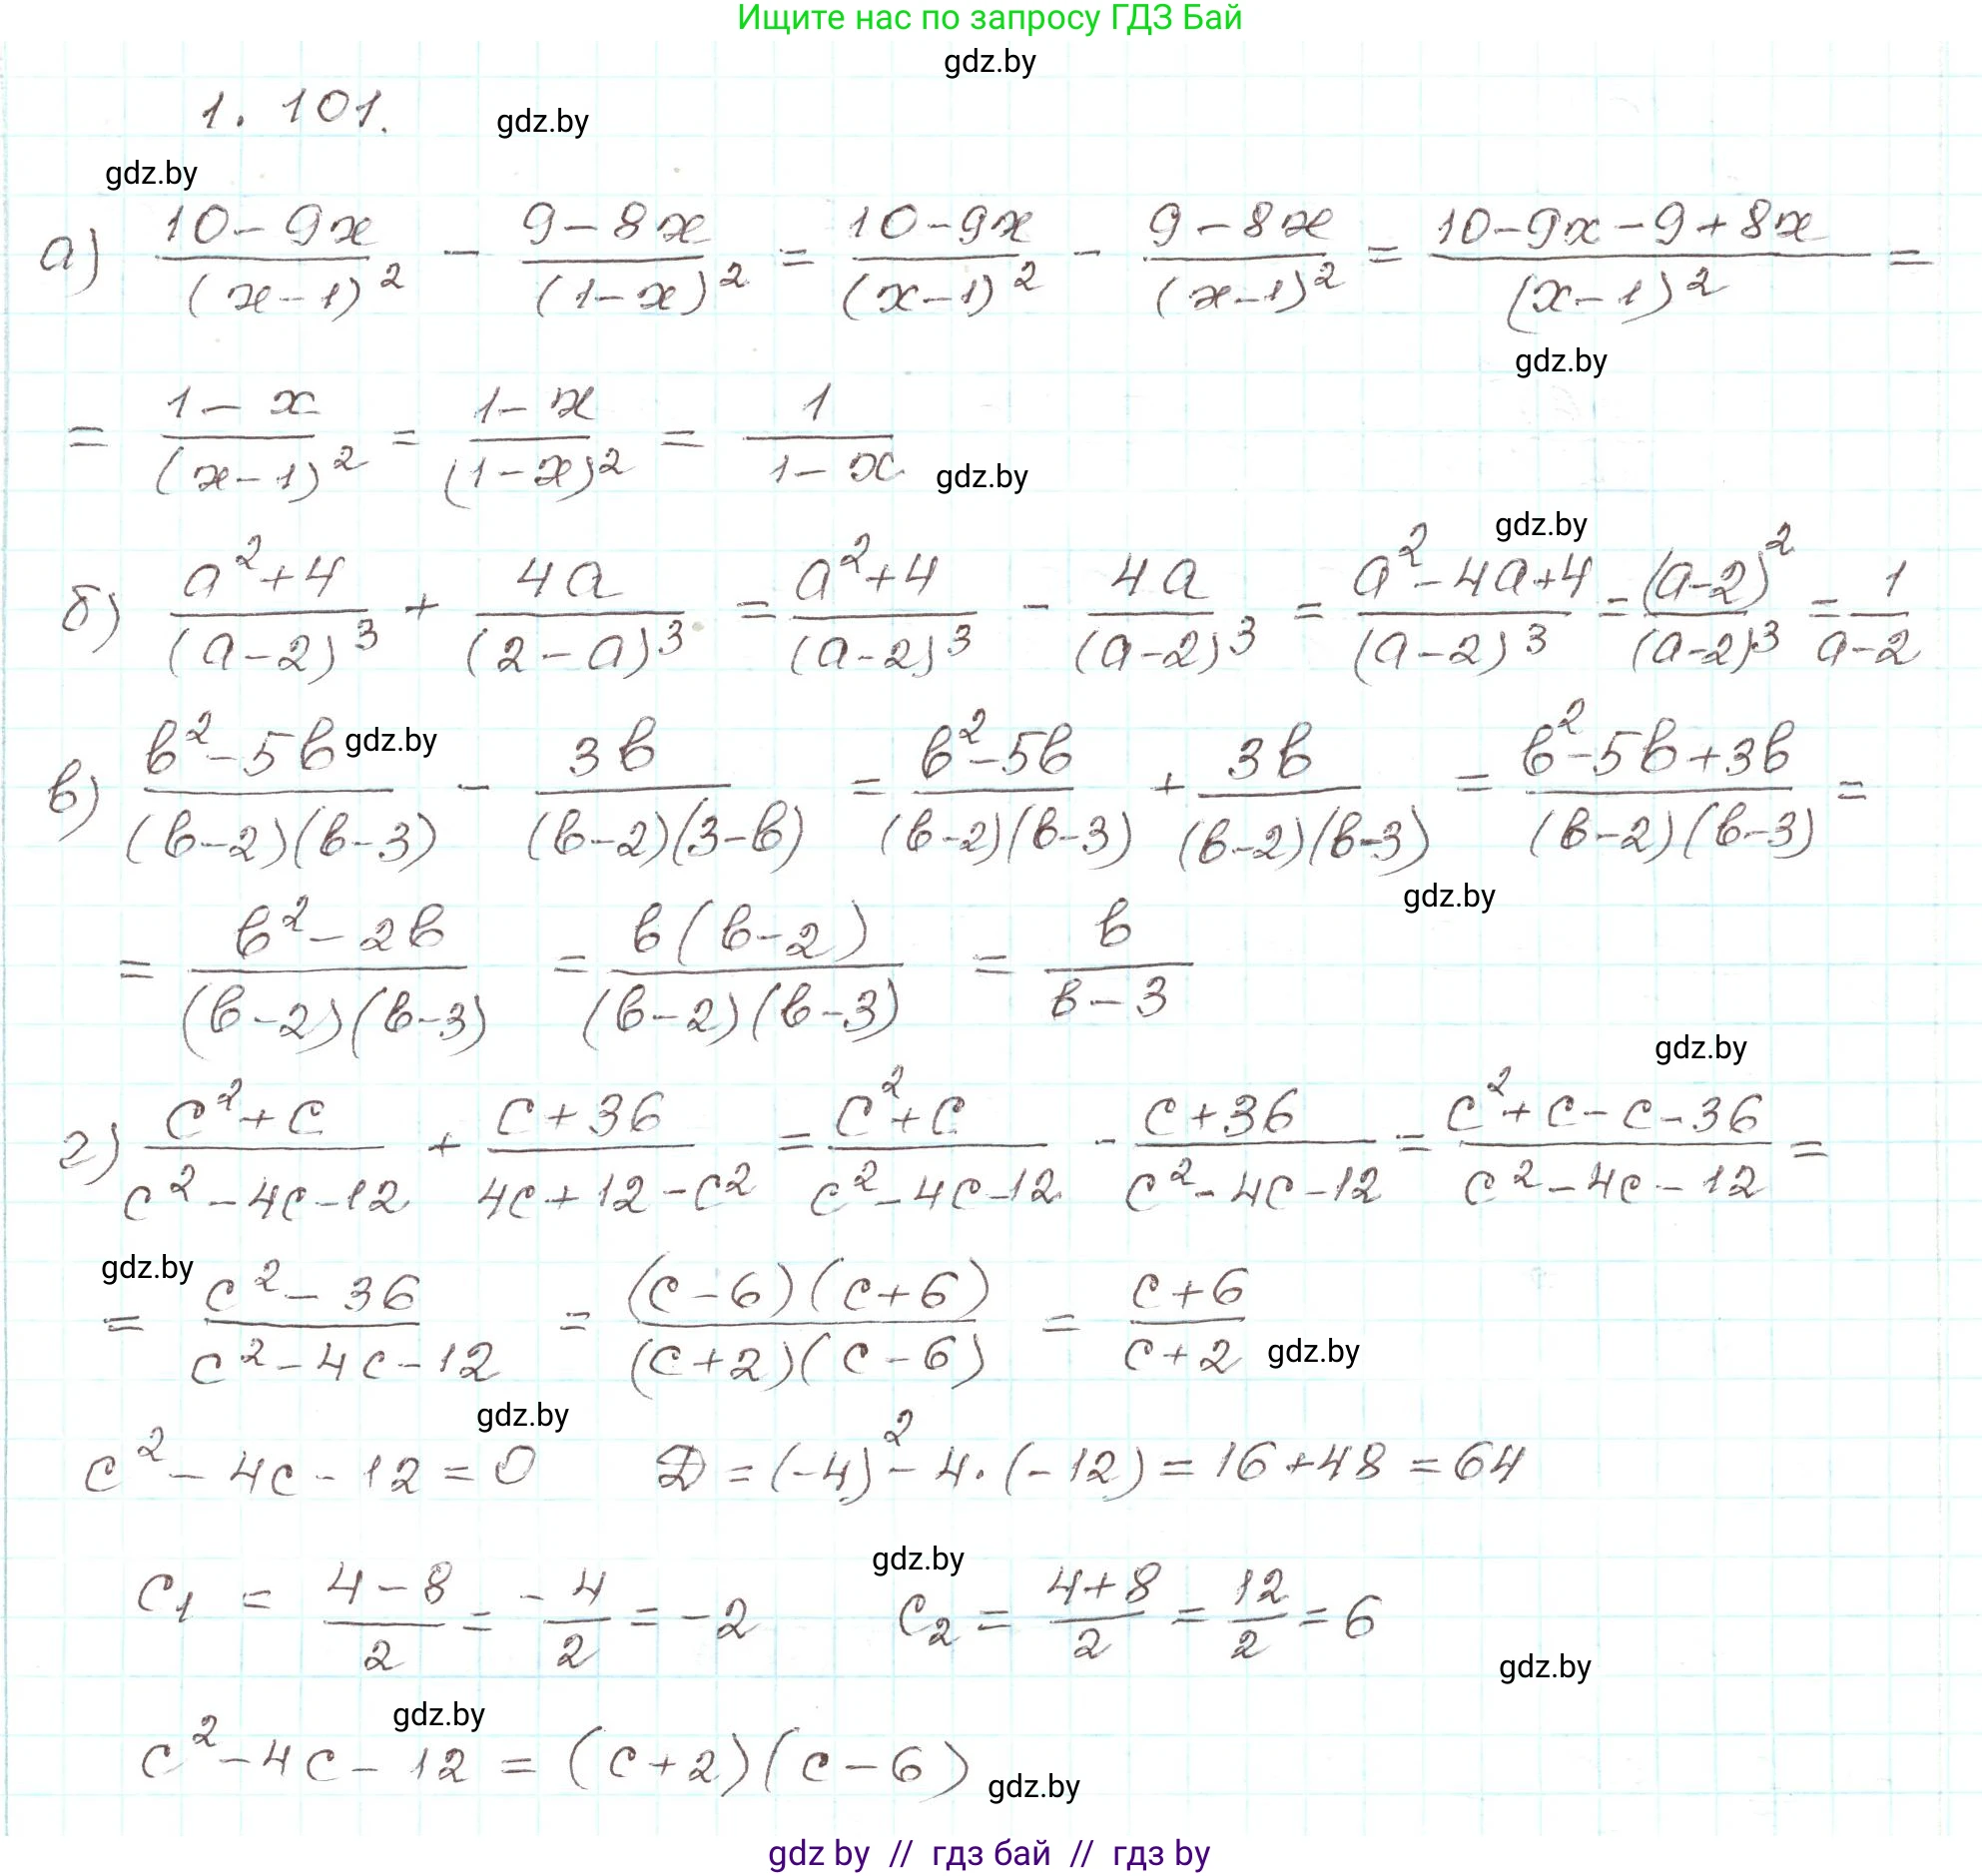 Ищите нас по запросу ГДЗ Бай
gdz.by
1. 101.
gdz.by
gdz.by
а) (10-9x)/(x-1)² - (9-8x)/(1-x)² = (10-9x)/(x-1)² - (9-8x)/(x-1)² = (10-9x-9+8x)/(x-1)² =
gdz.by
= (1-x)/(x-1)² = (1-x)/(1-x)² = 1/(1-x)
gdz.by
gdz.by
б) (a²+4)/(a-2)³ + 4a/(2-a)³ = (a²+4)/(a-2)³ - 4a/(a-2)³ = (a²-4a+4)/(a-2)³ = (a-2)²/(a-2)³ = 1/(a-2)
gdz.by
в) (b²-5b)/((b-2)(b-3)) - 3b/((b-2)(3-b)) = (b²-5b)/((b-2)(b-3)) + 3b/((b-2)(b-3)) = (b²-5b+3b)/((b-2)(b-3)) =
gdz.by
= (b²-2b)/((b-2)(b-3)) = b(b-2)/((b-2)(b-3)) = b/(b-3)
gdz.by
г) (c²+c)/(c²-4c-12) + (c+36)/(4c+12-c²) = (c²+c)/(c²-4c-12) - (c+36)/(c²-4c-12) = (c²+c-c-36)/(c²-4c-12) =
gdz.by
= (c²-36)/(c²-4c-12) = ((c-6)(c+6))/((c+2)(c-6)) = (c+6)/(c+2)
gdz.by
gdz.by
c²-4c-12=0 D=(-4)²-4·(-12)=16+48=64
gdz.by
c₁ = (4-8)/2 = -4/2 = -2 c₂ = (4+8)/2 = 12/2 = 6
gdz.by
gdz.by
c²-4c-12 = (c+2)(c-6)
gdz.by
gdz by // гдз бай // gdz by